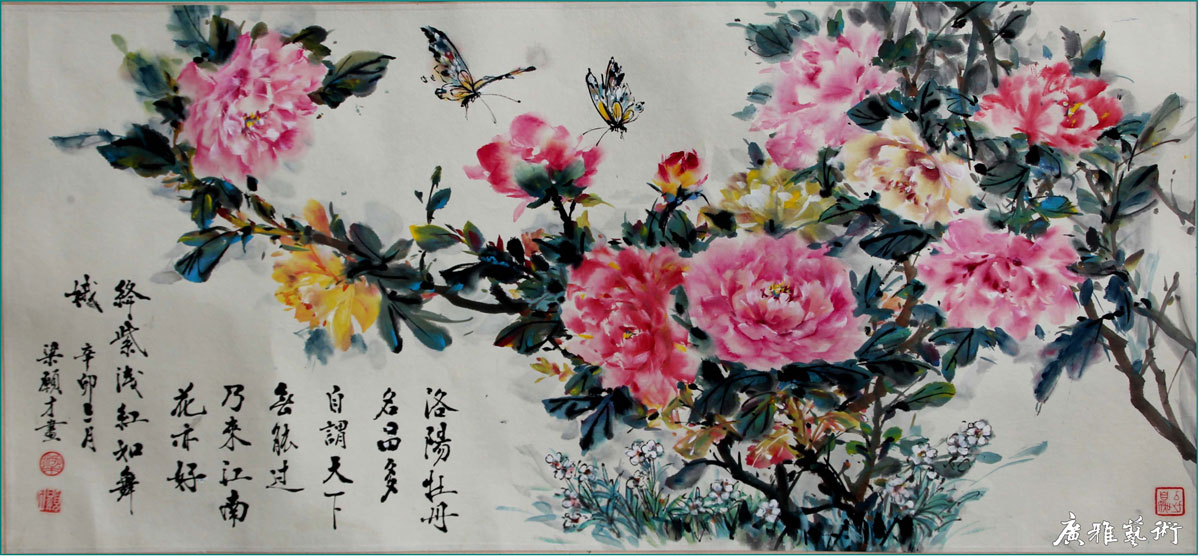 洛陽牡丹
名品多
自謂天下
無能过
乃来江南
花亦好
絳紫浅紅如舞
娥
辛卯 月
梁 才畫
廣雅藝術